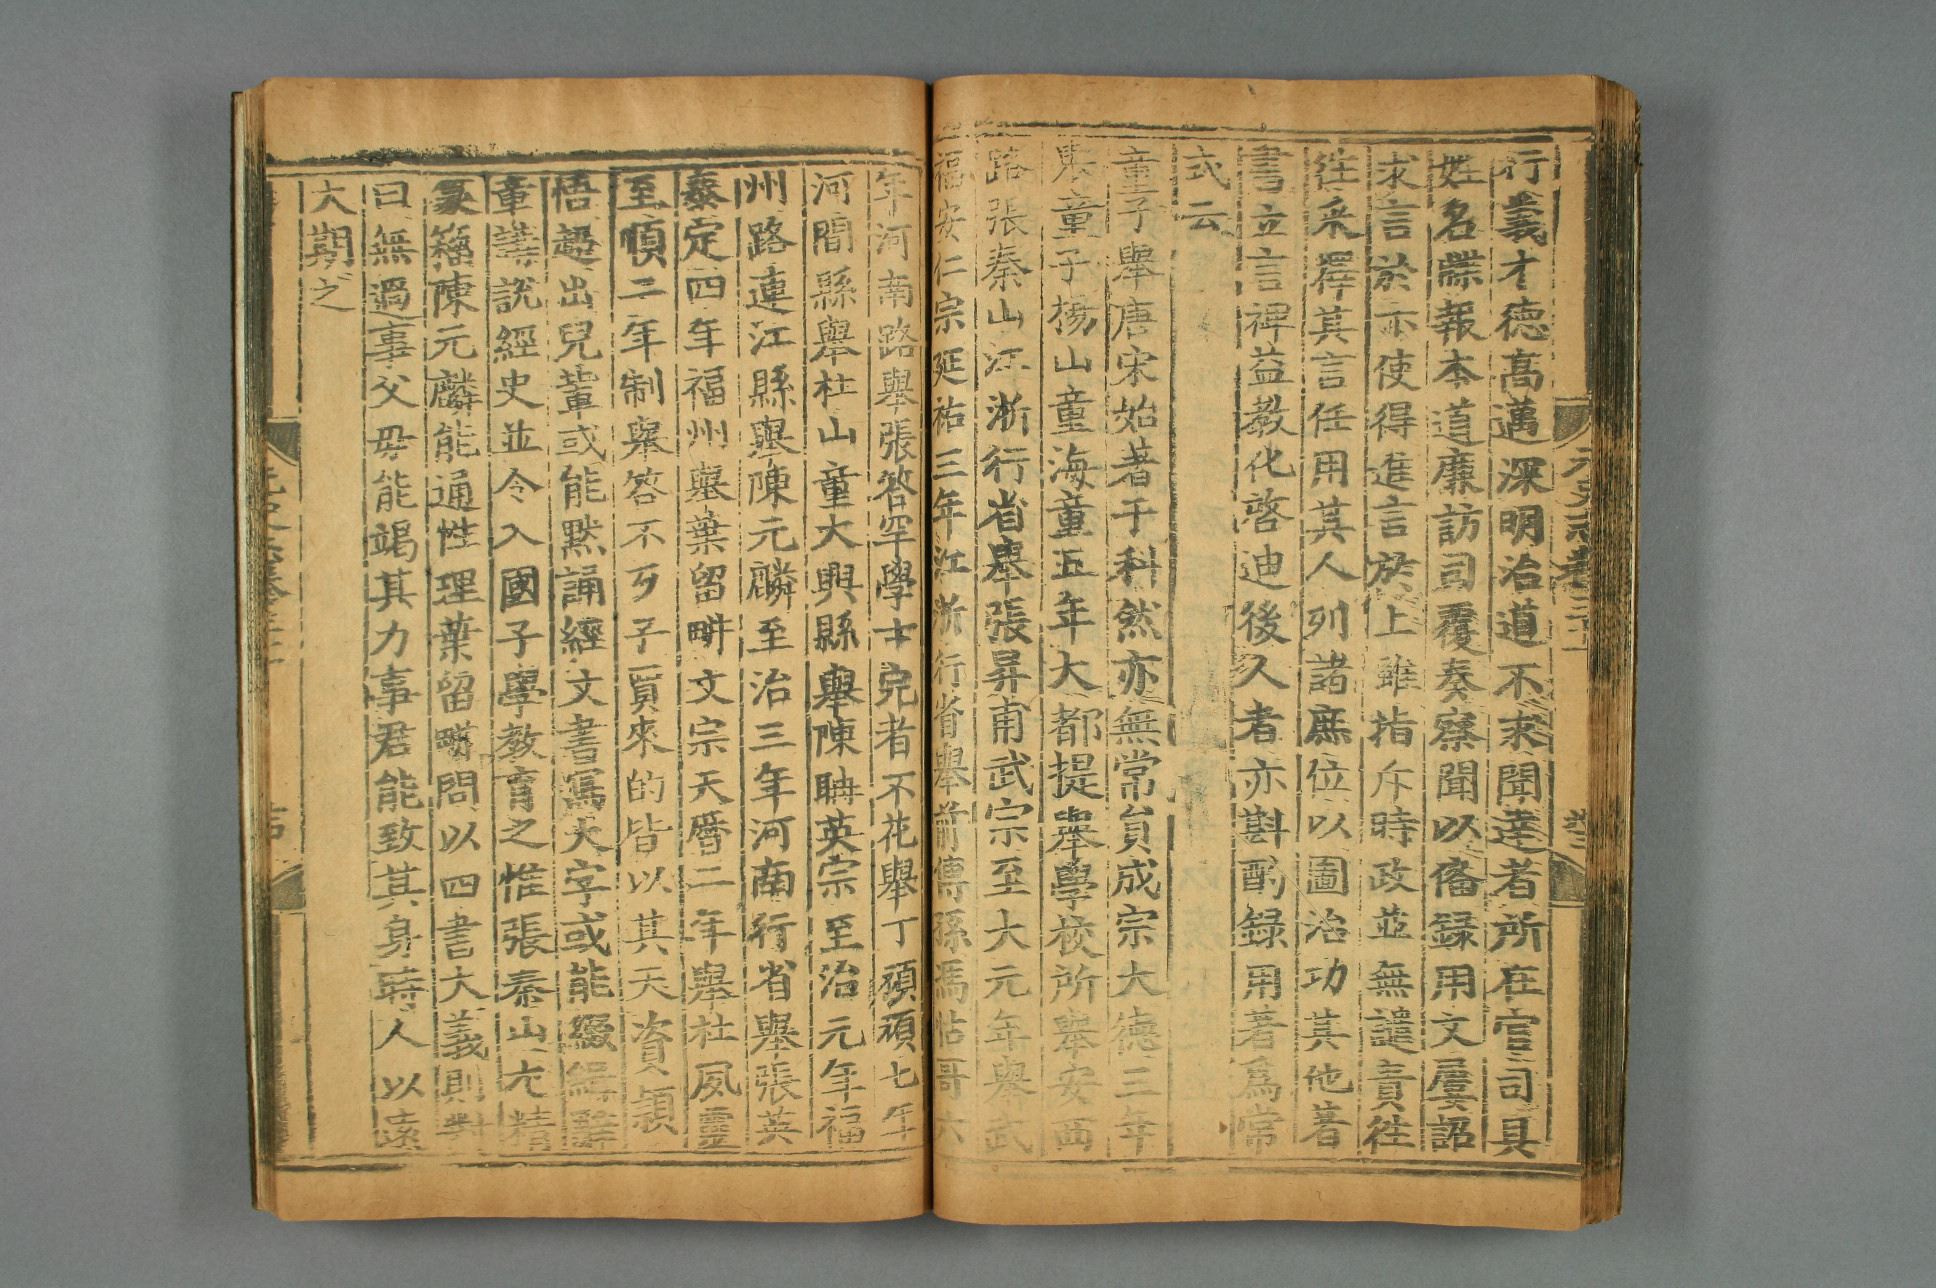 行義才德高邁深明治道不求聞達者所在官司具
姓名牒報本道廉訪司覆奏察聞以俻録用文屢詔
求言於示使得進言於上雖指斥時政並無譴責徃
徃采擇其言任用其人列諸庶位以圖治功其他著
書立言禆益教化啓迪後人者亦斟酌録用著爲常
式云
童子舉唐宋始著于科然亦無常貟成宗大德三年
舉童子楊山童海童五年大都提舉學校所舉安西
路張秦山江浙行省舉張昇甫武宗至大元年舉武
福安仁宗延祐三年江浙行省舉前傳孫馮怗哥六
年河南路舉張答罕學士完者不花舉丁頑頑七年
河間縣舉杜山童大興縣舉陳聃英宗至治元年福
州路連江縣舉陳元麟至治三年河南行省舉張英
泰定四年福州舉葉留畊文宗天曆二年舉杜夙靈
至順二年制舉答不歹子買來的皆以其天資穎
悟超出兒輩或能默誦經文書寫大字或能綴緝辭
章講說經史並令入國子學教育之惟張秦山尤精
篆籀陳元麟能通性理葉留畊問以四書大義則對
曰無過事父母能竭其力事君能致其身時人以遠
大期之
元史志卷三十一